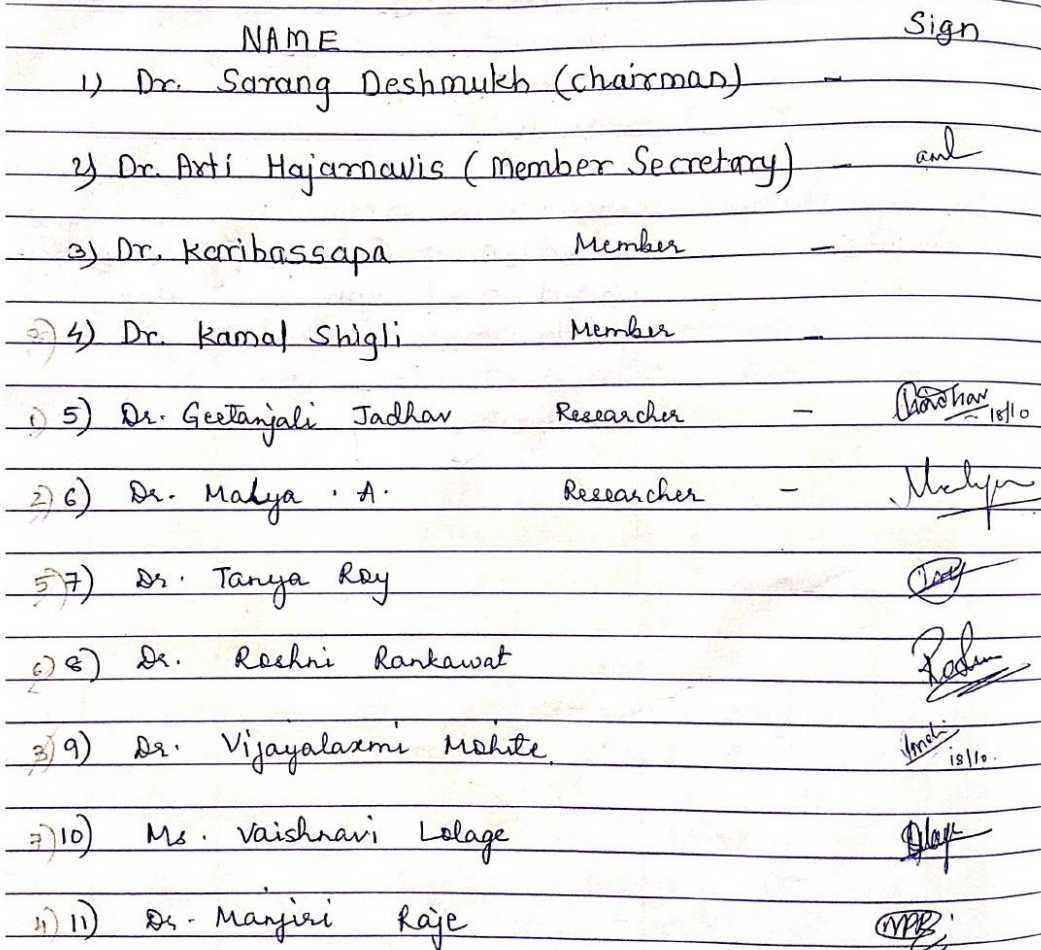 NAME Sign
1) Dr. Sarang Deshmukh (chairman) -
2) Dr. Arti Hajarnavis (Member Secretary) -
3) Dr. Karibassapa Member -
4) Dr. Kamal Shigli Member -
1) 5) Dr. Geetanjali Jadhav Researcher - 18/10
2) 6) Dr. Malya . A. Researcher -
5) 7) Dr. Tanya Roy
6) 8) Dr. Roshni Rankawat
3) 9) Dr. Vijayalaxmi Mohite 18/10.
7) 10) Ms. Vaishnavi Lolage
4) 11) Dr. Manjiri Raje